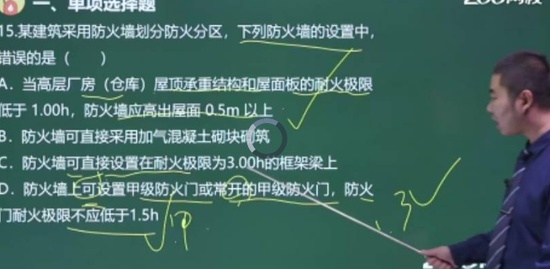 一、单项选择题
15.某建筑采用防火墙划分防火分区，下列防火墙的设置中，
错误的是（ ）
A．当高层厂房（仓库）屋顶承重结构和屋面板的耐火极限
低于 1.00h，防火墙应高出屋面 0.5m 以上
B．防火墙可直接采用加气混凝土砌块砌筑
C．防火墙可直接设置在耐火极限为3.00h的框架梁上
D．防火墙上可设置甲级防火门或常开的甲级防火门，防火
门耐火极限不应低于1.5h